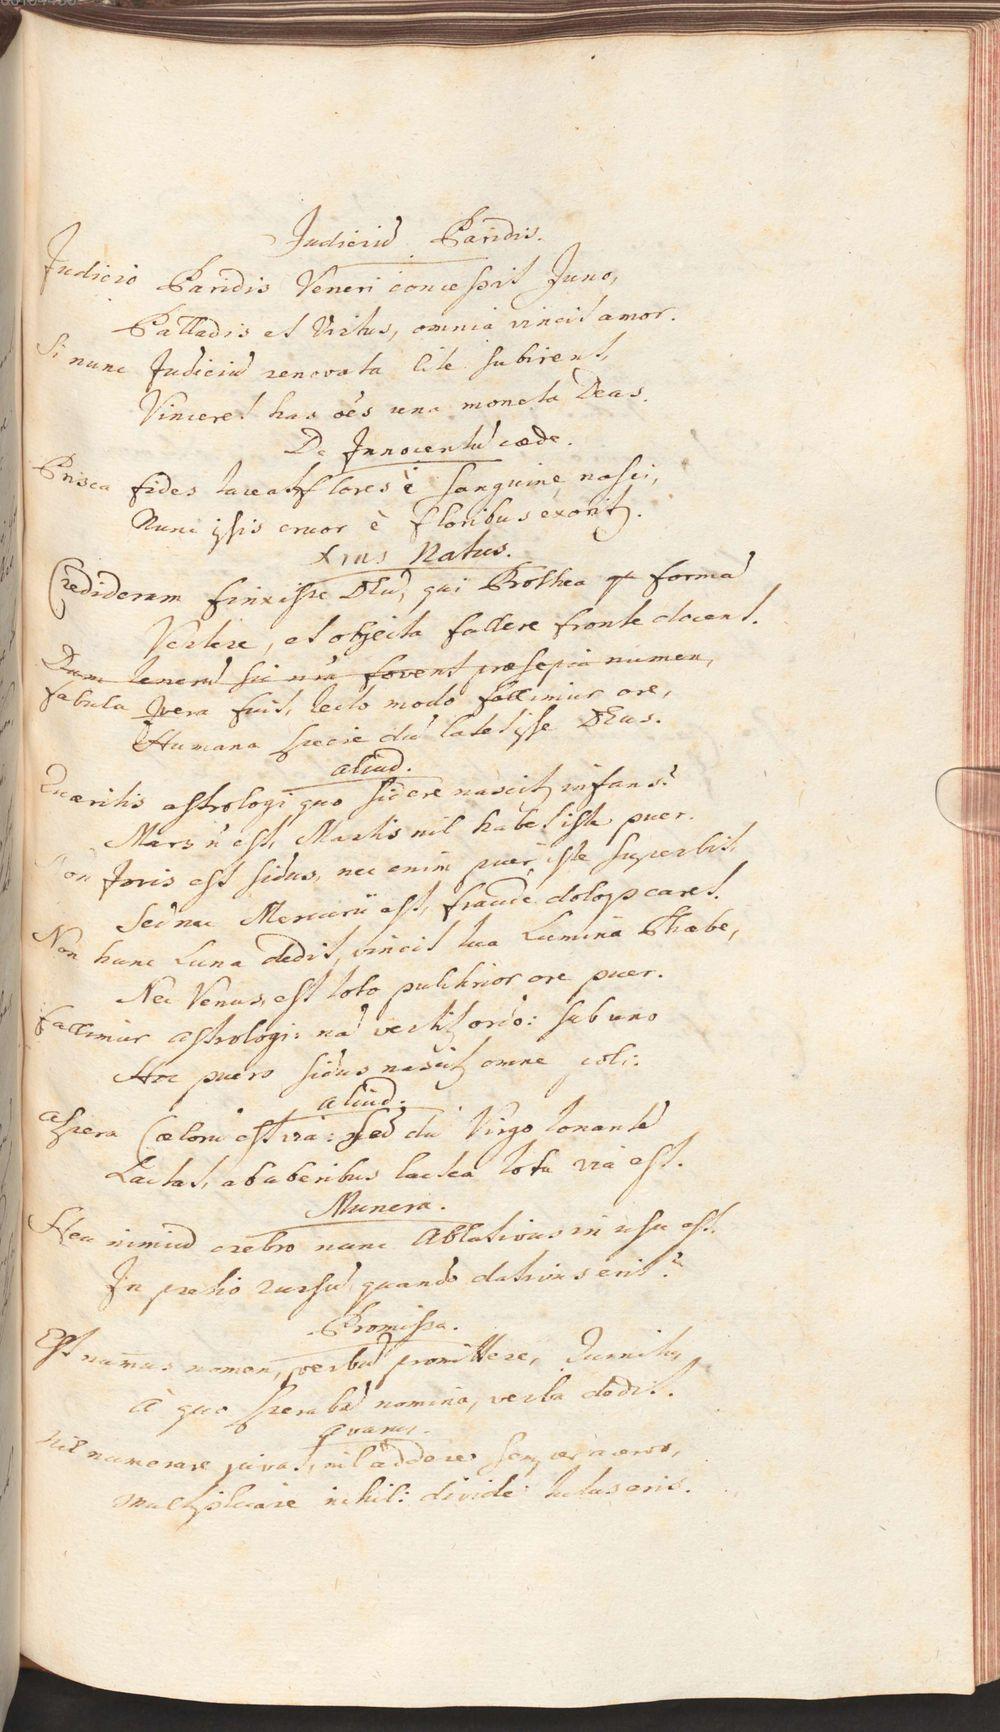 Judiciū Paridis.
Judicio Paridis Veneri concessit Juno,
Palladis et Virtus, omnia vincit amor.
Si nunc Judiciū renovata lite subirent,
Vinceret has oēs una moneta Deas.
De Innocentū cæde.
Prisca fides taceat flores è sanguine nasci,
Nunc ipsis cruor è floribus exorit.
Xrus Natus.
Credideram finxisse DEū, qui Prothea formā
Vertere, et objecta fallere fronte docent.
Dum tenerū sic nrā fovent præsepia numen,
fabula vera fuit, tecto modo fallimur ore,
Humana specie dū latet ipse DEus.
aliud.
Quæritis astrologi quo sidere nascit infans?
Mars ñ est, Martis nil habet iste puer.
Non Jovis est sidus, nec enim puer iste superbit,
Sed nec Mercurii est, fraude dolosq caret.
Non hunc Luna dedit, vincit tua Lumina Phæbe,
Nec Venus, est toto pulchrior ore puer.
fallimur astrologi: nā vertit ordo: sub uno
Hoc puero sidus nascit omne poli.
aliud.
Aspera Cælorū est via: sed dū Virgo tonantē
Lactat, ab uberibus lactea tota via est.
Munera.
Heu nimiū crebro nunc Ablativus in usu est.
In pretio rursū quando dativus erit?
Promissa.
Est numus nomen, verbū promittere,
à quo sperabā nomina, verba dedit.
avarus.
Nil numerare juvat, nil addere semper avaro,
multiplicare nihil: divide: tutus eris.